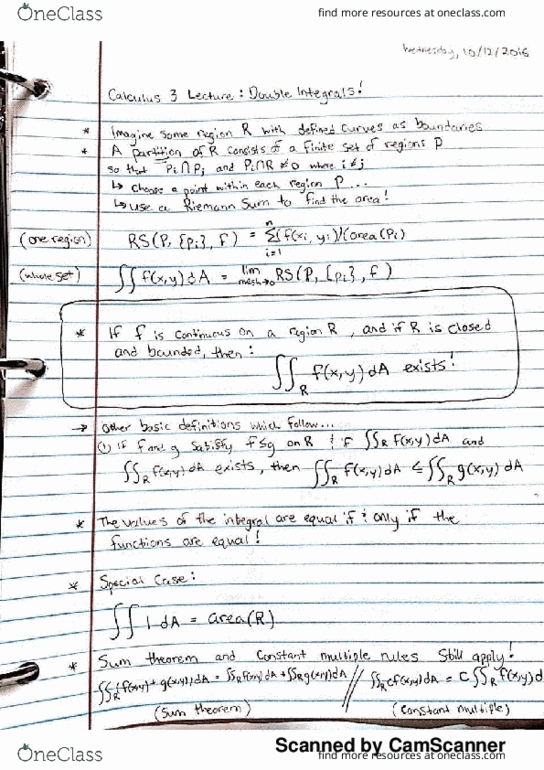 OneClass
find more resources at oneclass.com
Wednesday, 10/12/2016
Calculus 3 Lecture: Double Integrals!
* Imagine some region R with defined curves as boundaries
* A partition of R consists of a finite set of regions P
so that Pi∩Pj and Pi∩R ≠0 where i≠j
↳ choose a point within each region P...
↳ use a Riemann Sum to find the area!
(one region) RS(P, {pi}, f) = n Σ i=1 f(xi, yi)(area(Pi)
(whole set) ∬ f(x,y) dA = lim mesh→0 RS(P, {pi}, f)
* If f is continuous on a region R, and if R is closed
and bounded, then:
∬R f(x,y) dA exists!
→ other basic definitions which follow...
(1) If f and g satisfy f≤g on R & if ∬R f(x,y) dA and
∬R f(x,y) dA exists, then ∬R f(x,y) dA ≤ ∬R g(x,y) dA
* The values of the integral are equal if & only if the
functions are equal!
* Special Case:
∬ 1 dA = area(R)
* Sum theorem and constant multiple rules still apply!
∬R(f(x,y)+g(x,y))dA = ∬R f(x,y)dA + ∬R g(x,y)dA // ∬R cf(x,y)dA = c∬R f(x,y)d
(Sum theorem) (constant multiple)
Scanned by CamScanner
OneClass
find more resources at oneclass.com